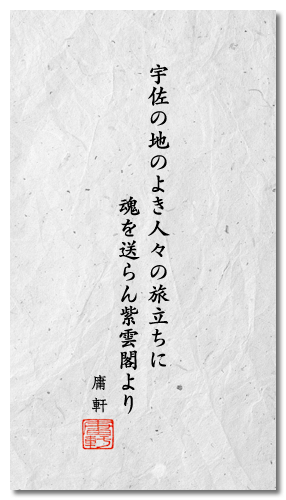 宇佐の地のよき人々の旅立ちに
魂を送らん紫雲閣より
庸軒
庸軒